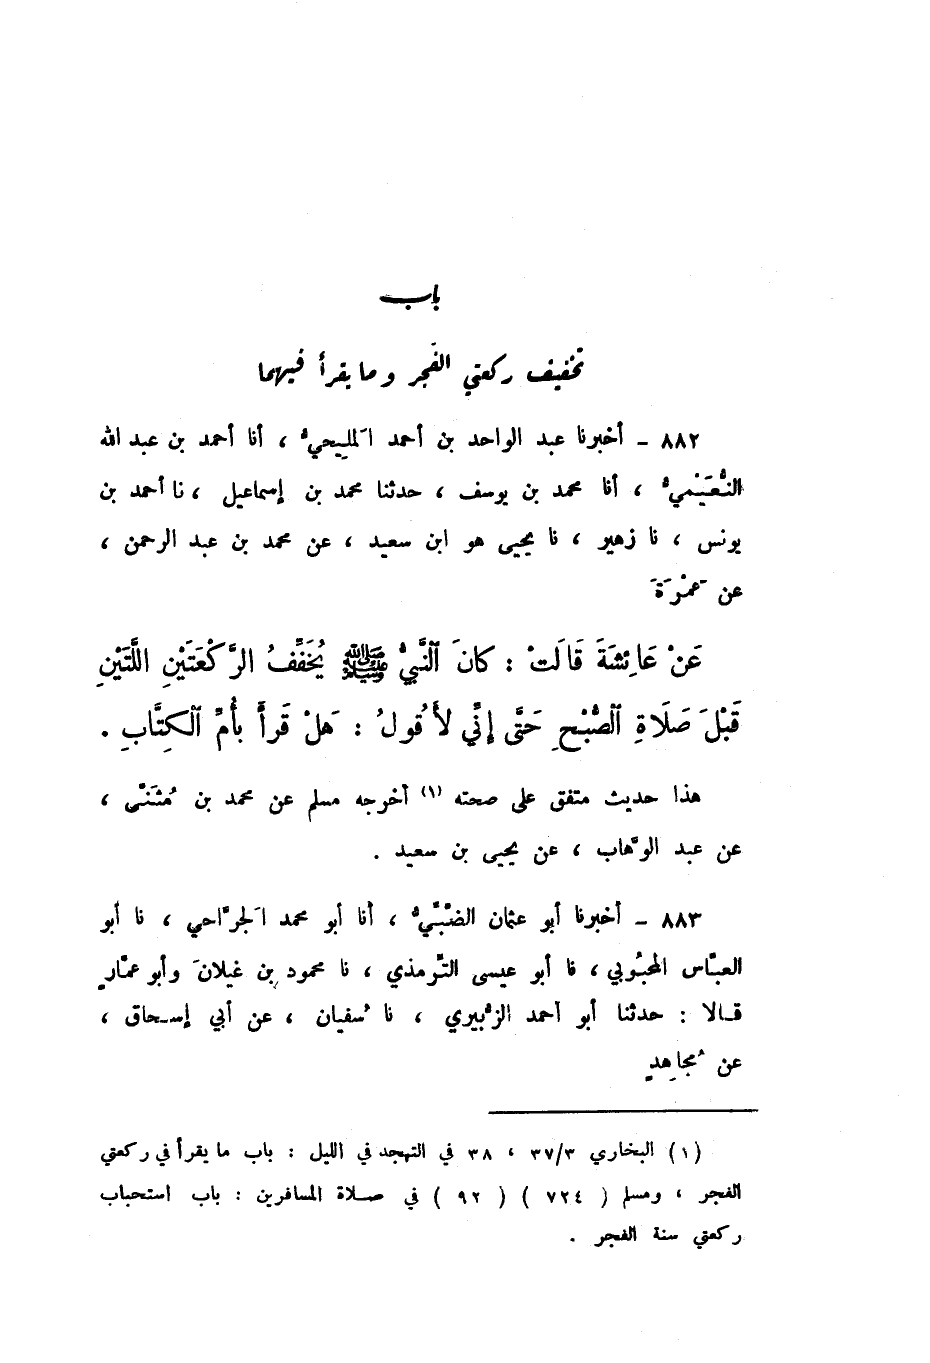 باب
تخفيف ركعتي الفجر وما يقرأ فيهما
٨٨٢ – أخبرنا عبد الواحد بن أحمد المَلِيحيُّ ، أنا أحمد بن عبد الله
النُّعَيْميُّ ، أنا محمد بن يوسف ، حدثنا محمد بن إسماعيل ، نا أحمد بن
يونس ، نا زهير ، نا يحيى هو ابن سعيد ، عن محمد بن عبد الرحمن ،
عن عَمْرَةَ
عَنْ عَائِشَةَ قَالَتْ : كَانَ ٱلنَّبِيُّ ﷺ يُخَفِّفُ الرَّكْعَتَيْنِ اللَّتَيْنِ
قَبْلَ صَلَاةِ ٱلصُّبْحِ حَتَّى إِنِّي لأَقُولُ : هَلْ قَرَأَ بِأُمِّ ٱلكِتَابِ .
هذا حديث متفق على صحته (١) أخرجه مسلم عن محمد بن مُثَنَّى ،
عن عبد الوَّهاب ، عن يحيى بن سعيد .
٨٨٣ – أخبرنا أبو عثمان الضَّبِّيُّ ، أنا أبو محمد الجَرَّاحي ، نا أبو
العبَّاس المحبُوبي ، نا أبو عيسى التِّرمذي ، نا محمود بن غيلانَ وأبو عمَّارٍ
قالا : حدثنا أبو أحمد الزُّبيري ، نا سُفيان ، عن أبي إسحاق ،
عن مُجاهِدٍ
(١) البخاري ٣٧/٣ ، ٣٨ في التهجد في الليل : باب ما يقرأ في ركعتي
الفجر ، ومسلم ( ٧٢٤ ) ( ٩٢ ) في صلاة المسافرين : باب استحباب
ركعتي سنة الفجر .